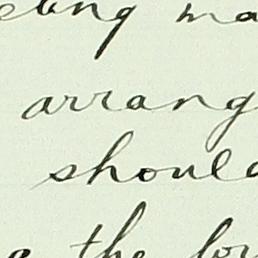 eting ma
arrang
should
e the for